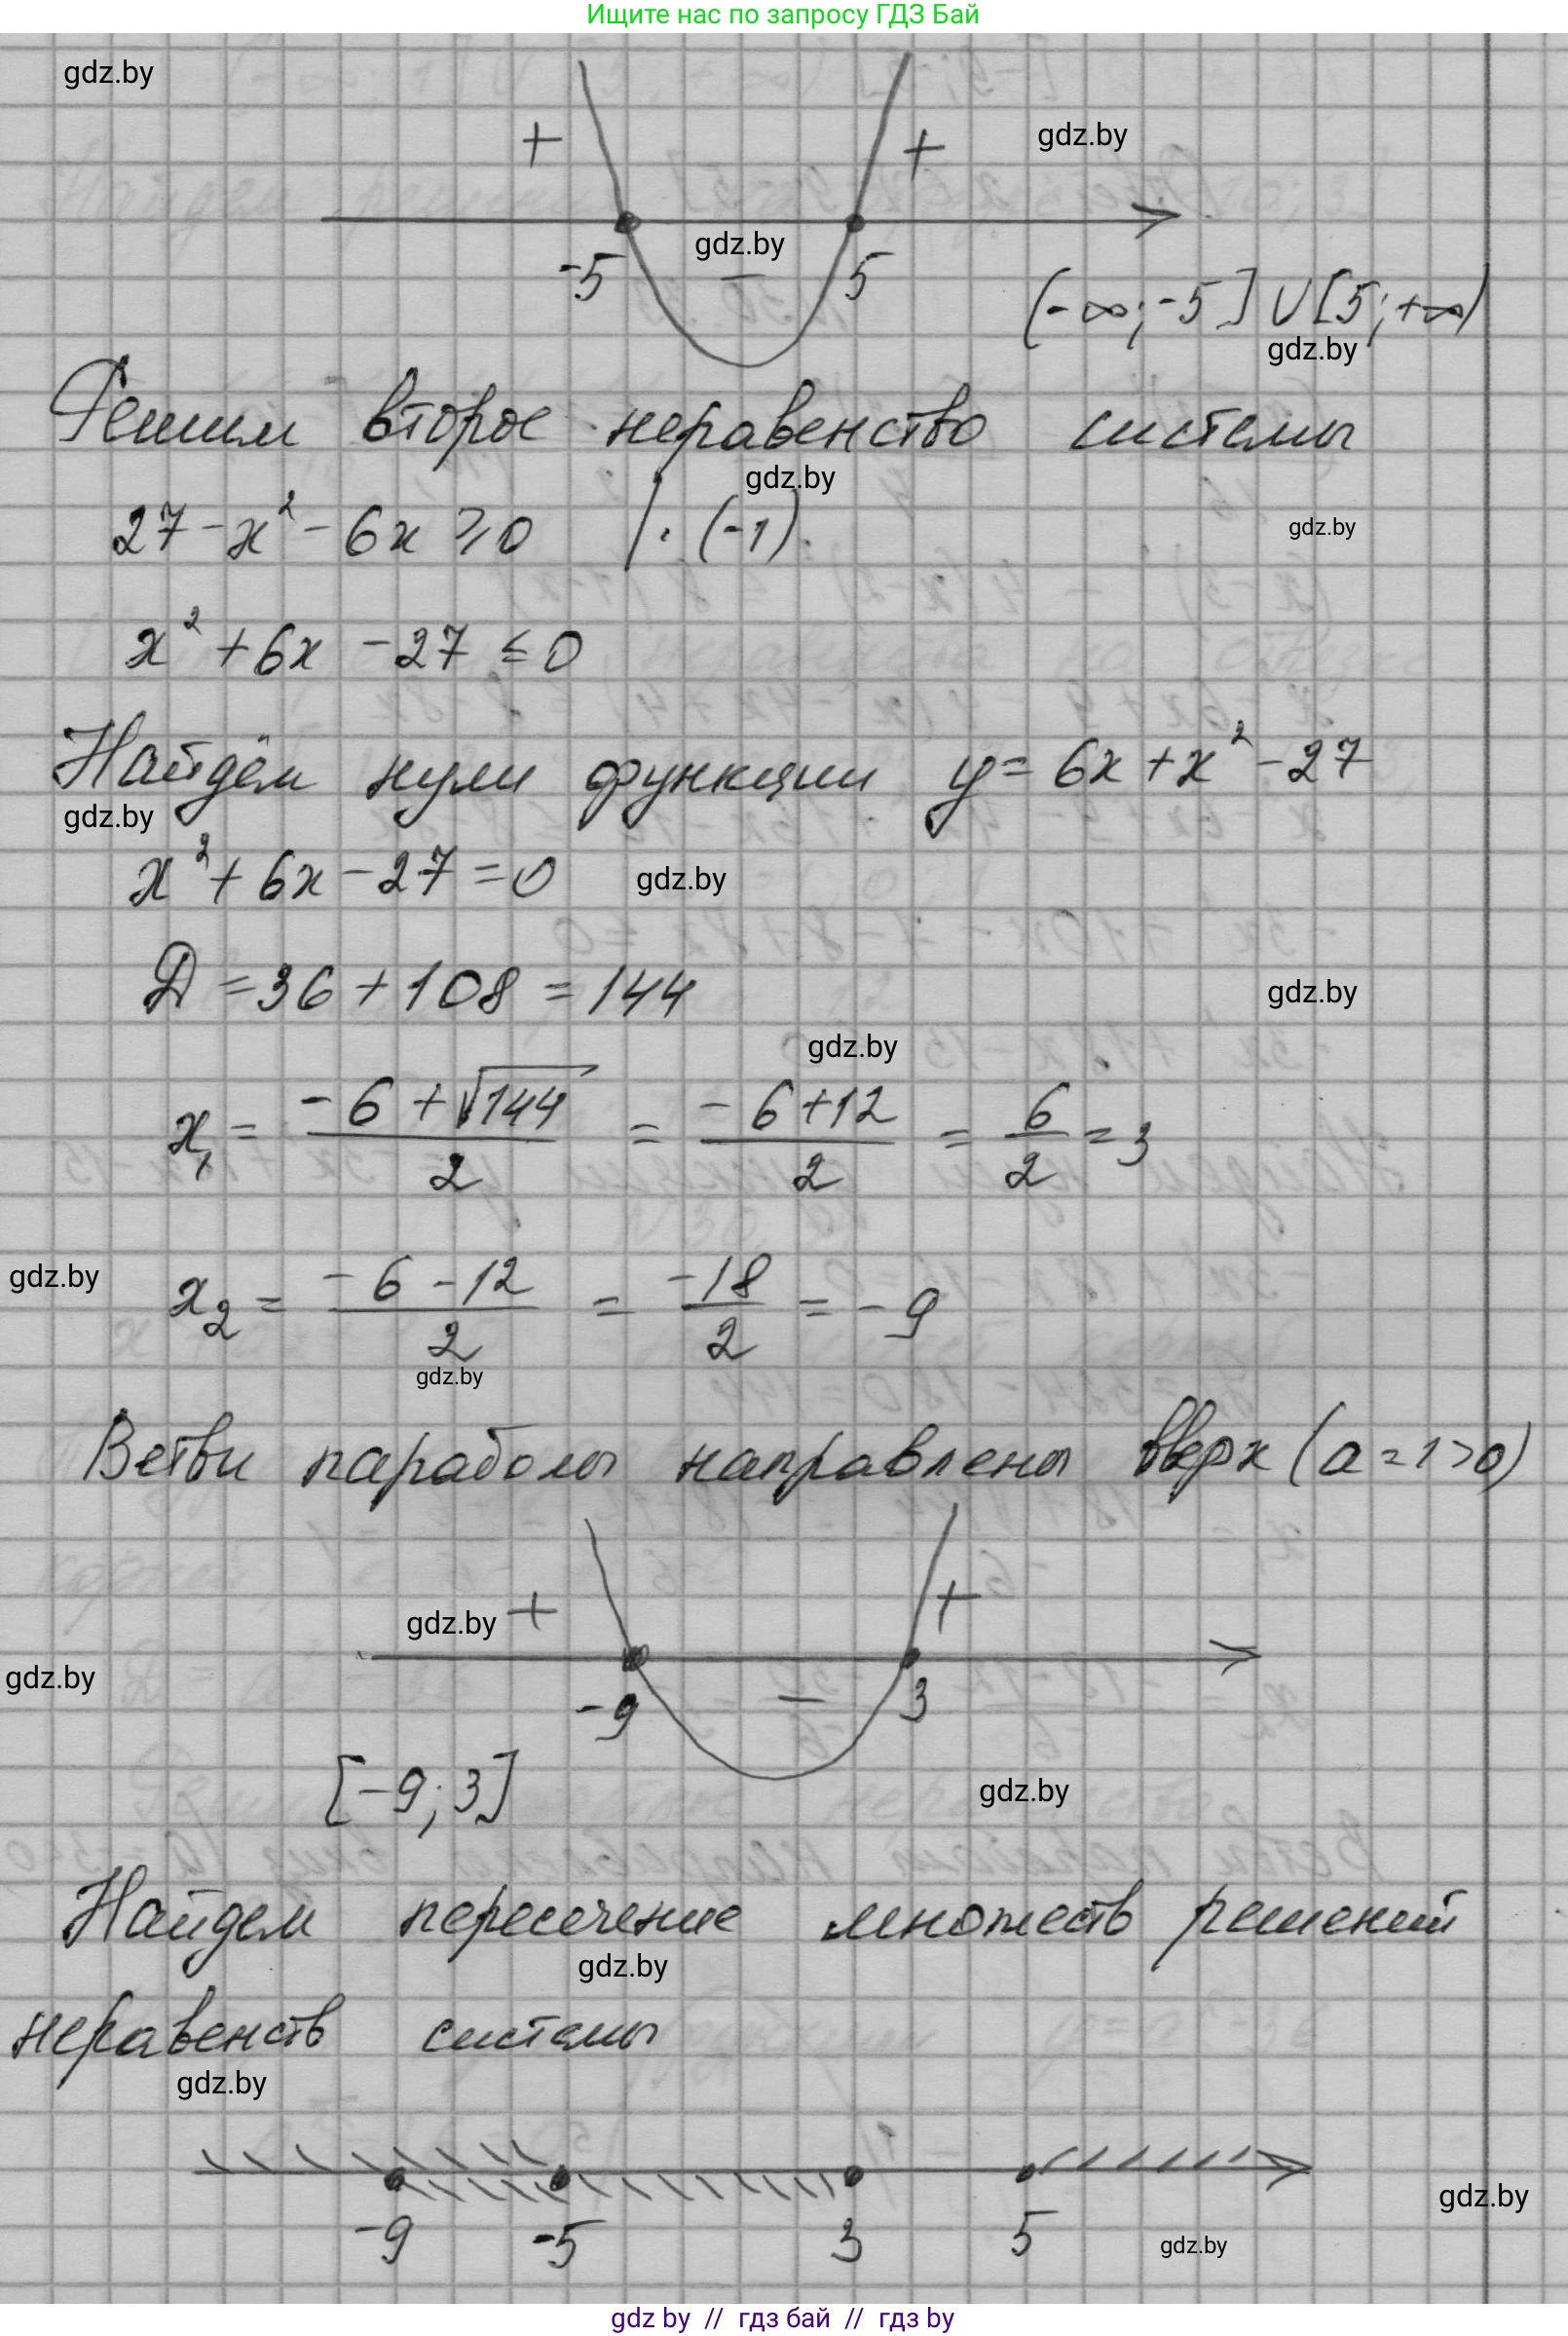 Ищите нас по запросу ГДЗ Бай
gdz.by
+ + gdz.by
gdz.by
-5 − 5
(-∞; -5] ∪ [5; +∞)
gdz.by
Решим второе неравенство системы
gdz.by
27 - x² - 6x ⩾ 0 | · (-1)
gdz.by
x² + 6x - 27 ≤ 0
Найдём нули функции y = 6x + x² - 27
gdz.by
x² + 6x - 27 = 0 gdz.by
Д = 36 + 108 = 144
gdz.by
gdz.by
x₁ = (-6 + √144)/2 = (-6 + 12)/2 = 6/2 = 3
gdz.by
x₂ = (-6 - 12)/2 = -18/2 = -9
gdz.by
Ветви параболы направлены вверх (a = 1 > 0)
gdz.by + +
gdz.by
-9 − 3
[-9; 3]
gdz.by
Найдем пересечение множеств решений
gdz.by
неравенств системы
gdz.by
gdz.by
-9 -5 3 5
gdz.by
gdz by // гдз бай // гдз by